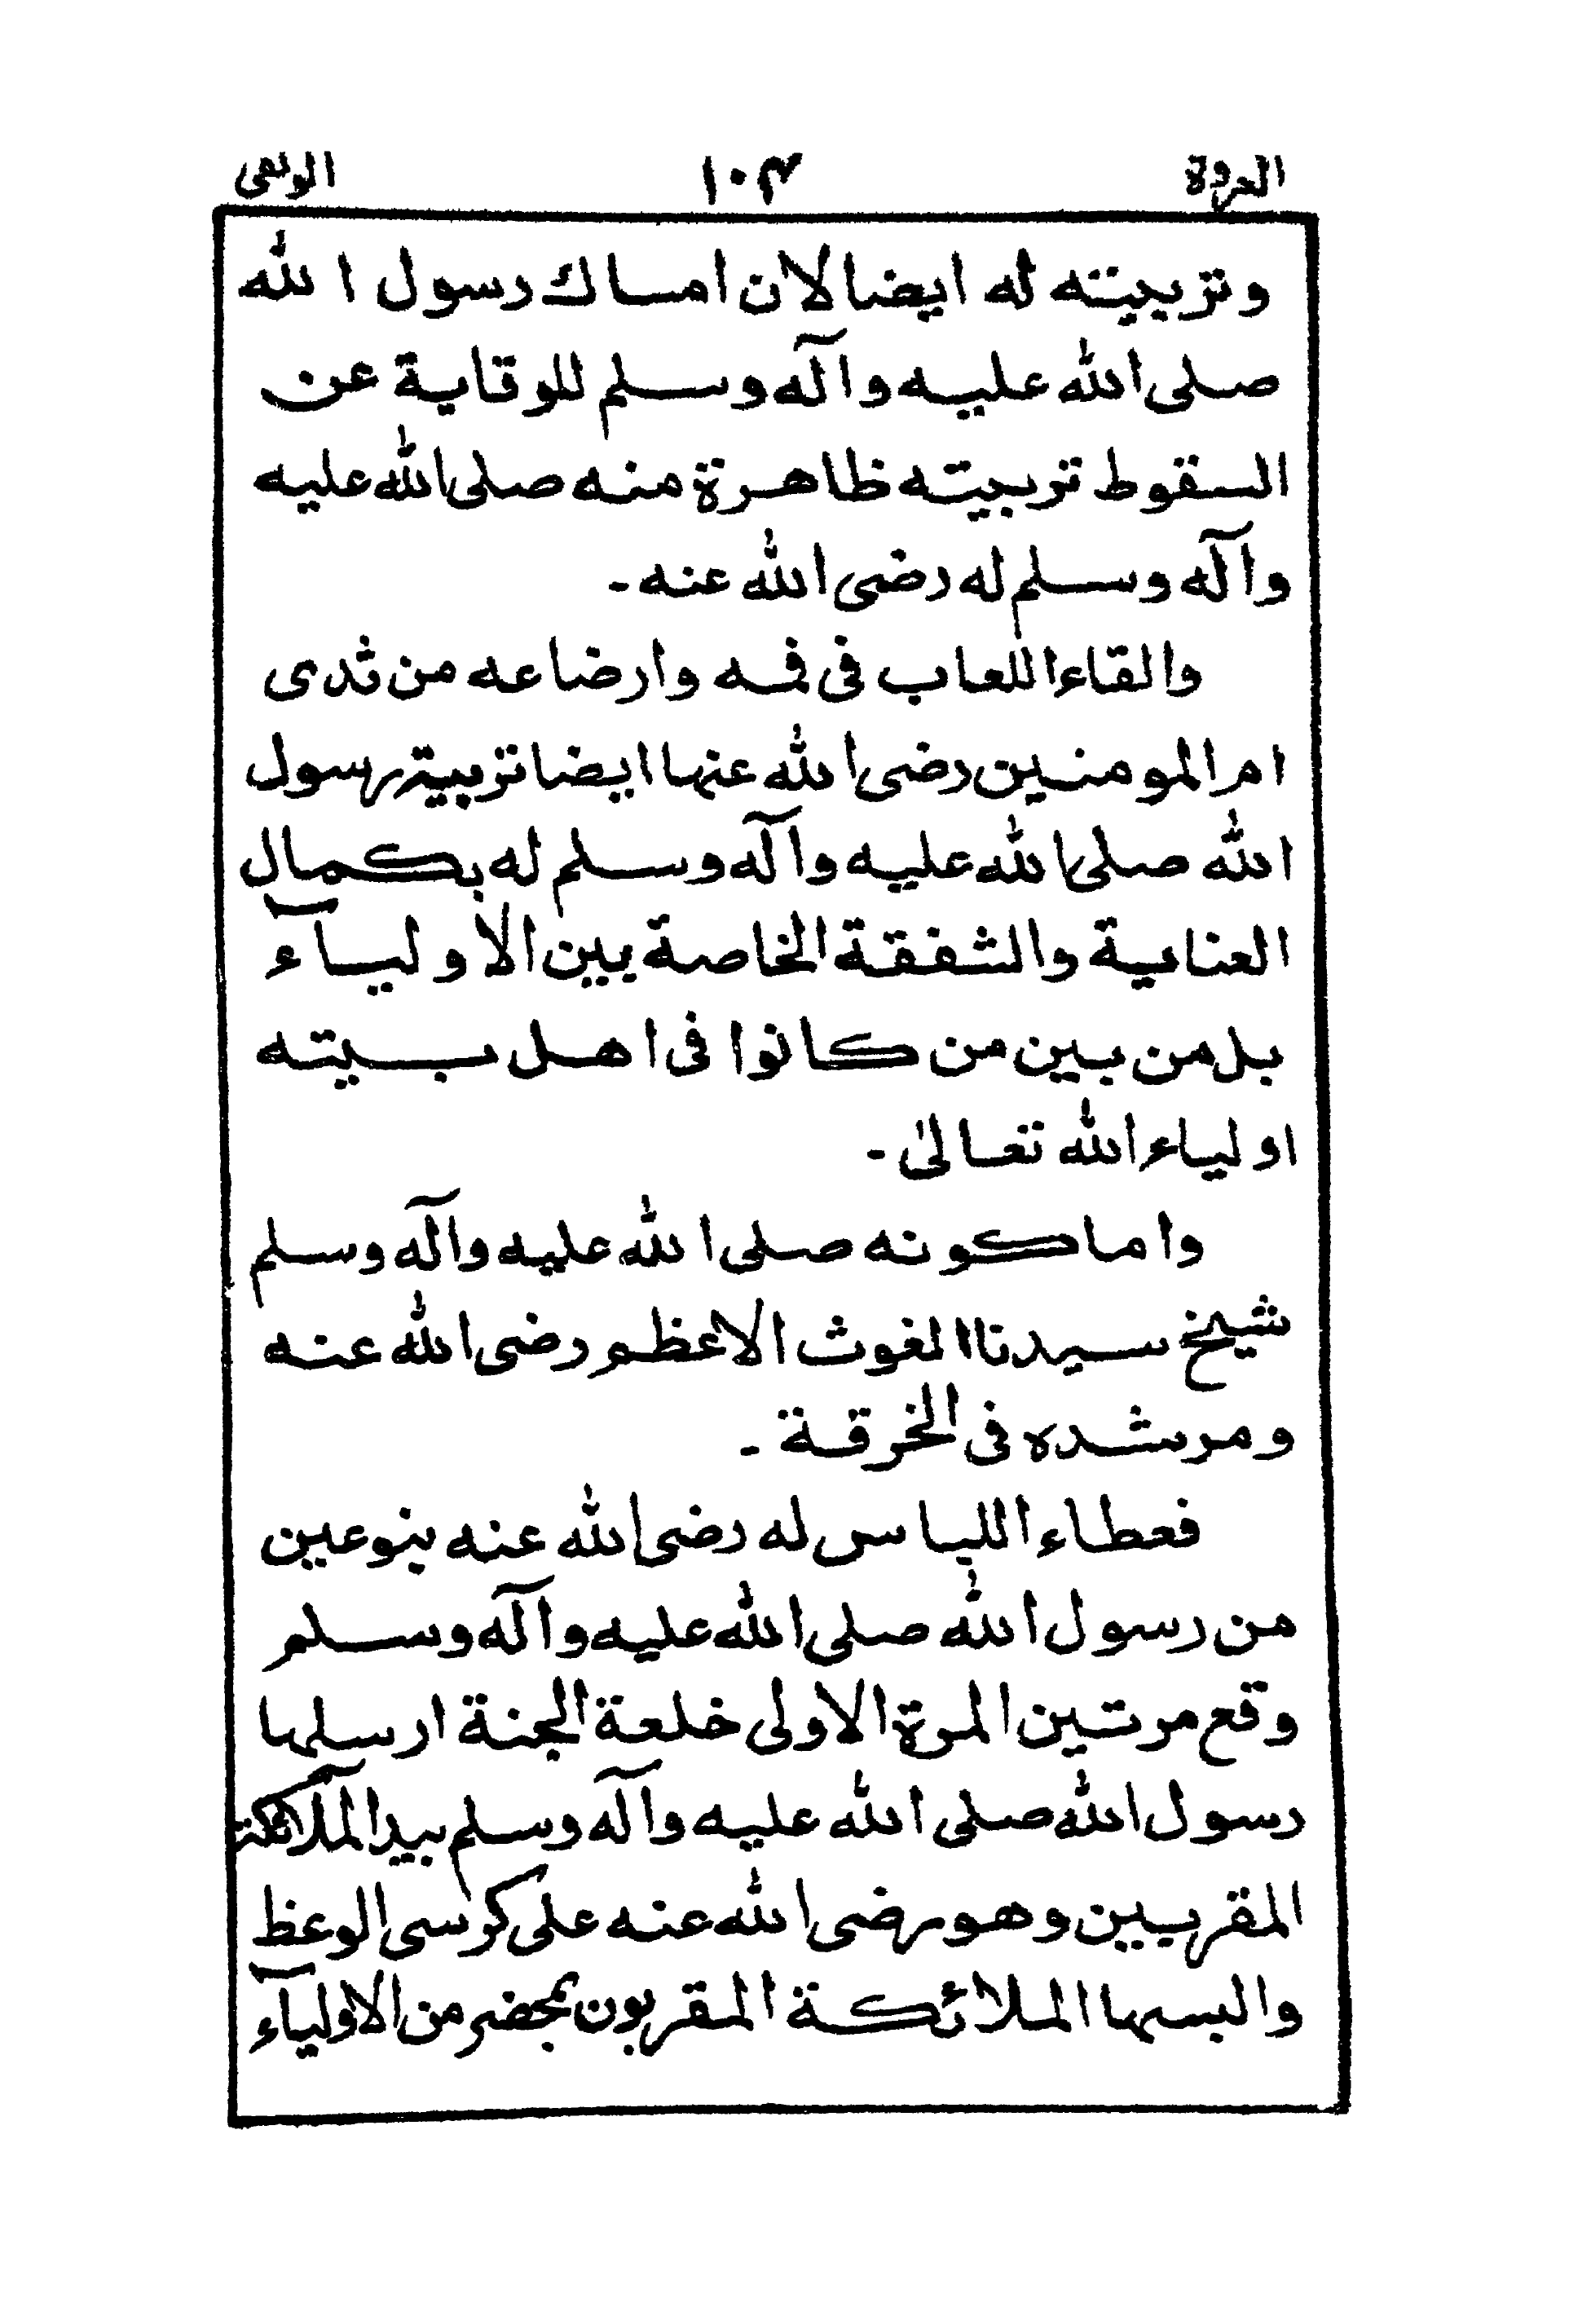 العروة ١٠٤ الوثقى
وتربيته له ايضا لان امساك رسول الله
صلى الله عليه وآله وسلم للوقاية عن
السقوط تربيته ظاهرة منه صلى الله عليه
وآله وسلم له رضى الله عنه -
والقاء اللعاب فى فمه وارضاعه من ثدى
ام المومنين رضى الله عنها ايضا تربية رسول
الله صلى الله عليه وآله وسلم له بكمال
العناية والشفقة الخاصة بين الاوليآء
بل من بين من كانوا فى اهل بيته
اولياء الله تعالىٰ -
واما كونه صلى الله عليه وآله وسلم
شيخ سيدنا الغوث الاعظم رضى الله عنه
ومرشده فى الخرقة -
فعطاء اللباس له رضى الله عنه بنوعين
من رسول الله صلى الله عليه وآله وسلم
وقع مرتين المرة الاولى خلعة الجنة ارسلها
رسول الله صلى الله عليه وآله وسلم بيد الملآئكة
المقربين وهو رضى الله عنه على كرسى الوعظ
والبسها الملائكة المقربون بمحضر من الاوليآء